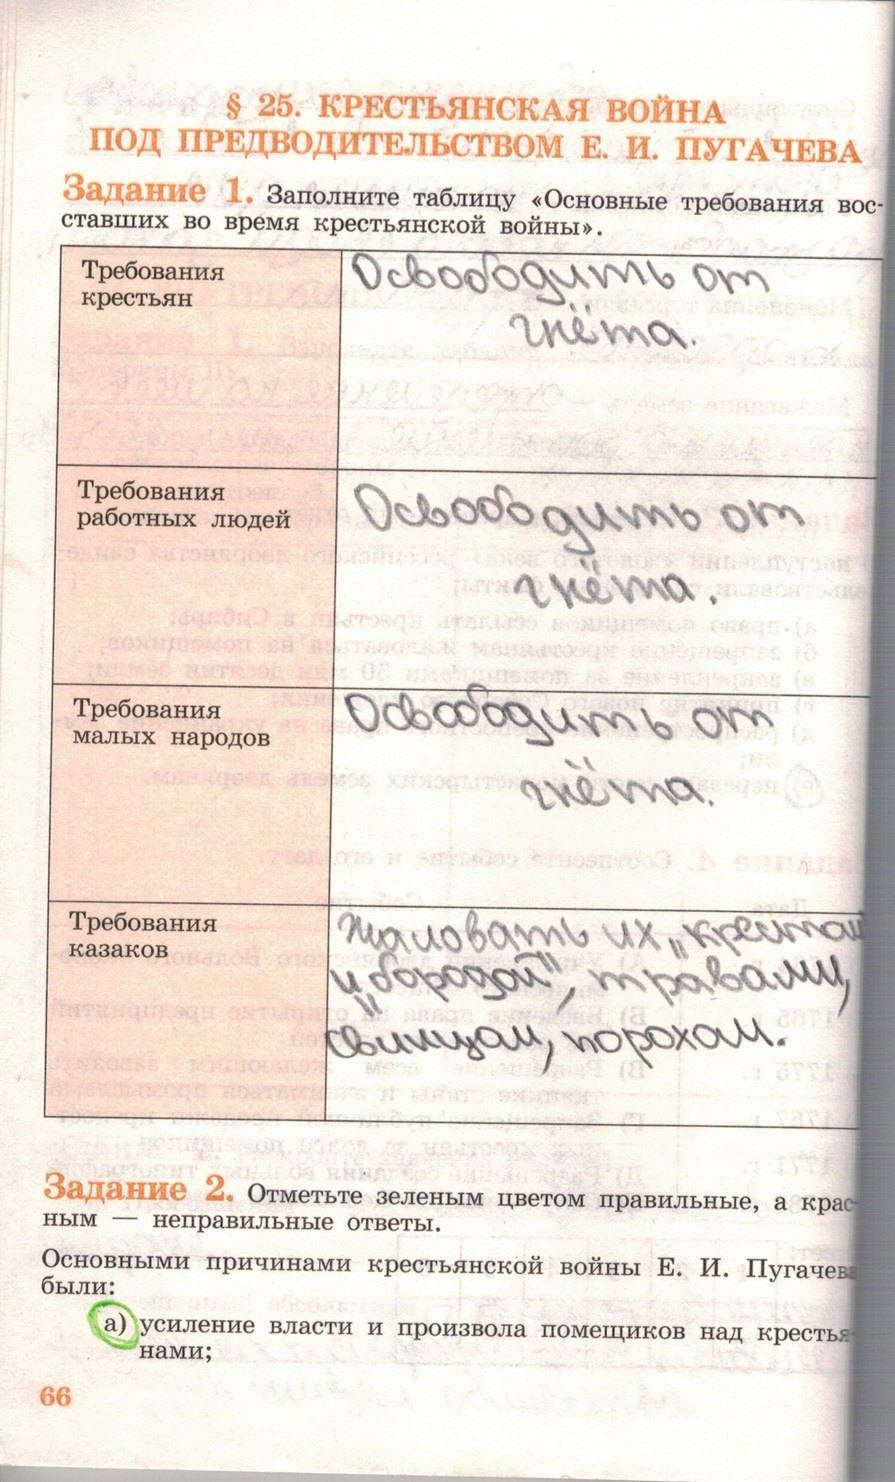 § 25. КРЕСТЬЯНСКАЯ ВОЙНА
ПОД ПРЕДВОДИТЕЛЬСТВОМ Е. И. ПУГАЧЕВА
Задание 1. Заполните таблицу «Основные требования вос-
ставших во время крестьянской войны».
Требования
крестьян
Освободить от
гнёта.
Требования
работных людей
Освободить от
гнёта.
Требования
малых народов
Освободить от
гнёта.
Требования
казаков
Жаловать их „крестом
и „бородой", травами,
свинцом, порохом.
Задание 2. Отметьте зеленым цветом правильные, а крас-
ным — неправильные ответы.
Основными причинами крестьянской войны Е. И. Пугачева
были:
а) усиление власти и произвола помещиков над крестья-
нами;
66